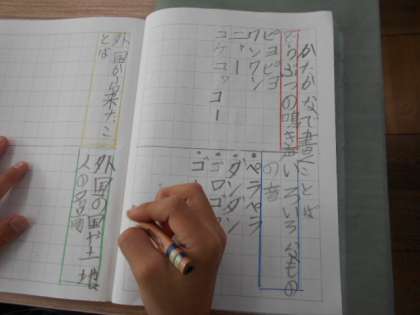 かたかなで書くことば
どうぶつの鳴き声
ピヨピヨ
ワンワン
ニャー
コケコッコー
いろいろなもの
の音
ペラペラ
ダンダン
ゴロゴロ
ゴー
外国から来たこ
とば
外国の国や土地
人の名前